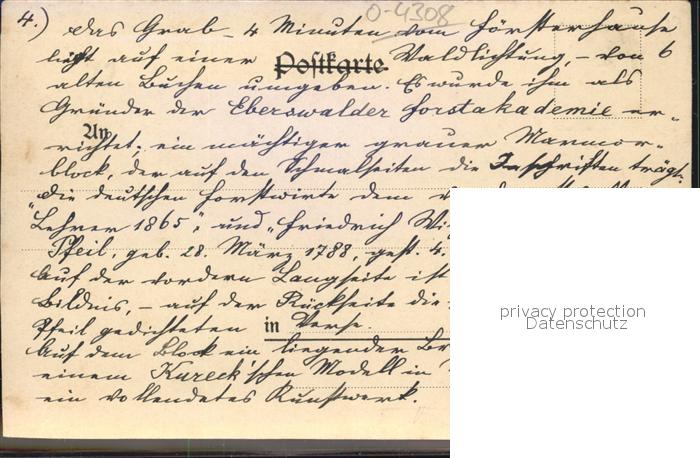 4.) das Grab – 4 Minuten vom Försterhause
O-4308
liegt auf einer Postkarte Waldlichtung, – von 6
alten Buchen umgeben. Es wurde ihm als
Gründer der Eberswalder Forstakademie er-
An
richtet: ein mächtiger grauer Marmor-
block, der auf den Schmalseiten die Inschriften trägt:
"Die deutschen Forstwirte dem
Lehrer 1865", und "Friedrich Wi
Pfeil, geb. 28. März 1788, gest. 4.
Auf der vordern Langseite ist
Bildnis, – auf der Rückseite die
Pfeil gedichteten in Verse.
Auf dem Block ein liegender Br
einem Kureck'schen Modell in
ein vollendetes Kunstwerk.
privacy protection
Datenschutz